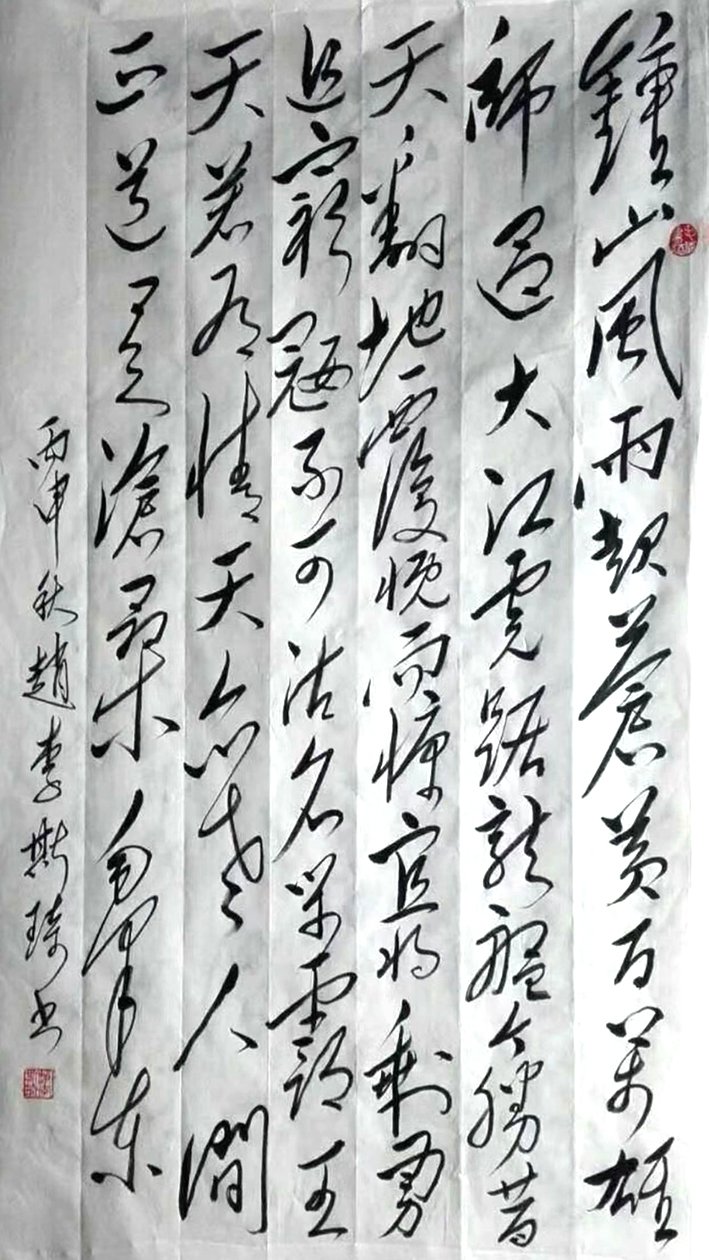 鍾山風雨起蒼黃百萬雄
師過大江虎踞龍盤今勝昔
天翻地覆慨而慷宜將剩勇
追窮寇不可沽名學霸王
天若有情天亦老人間
正道是滄桑毛澤東
丙申秋趙李斯琦书